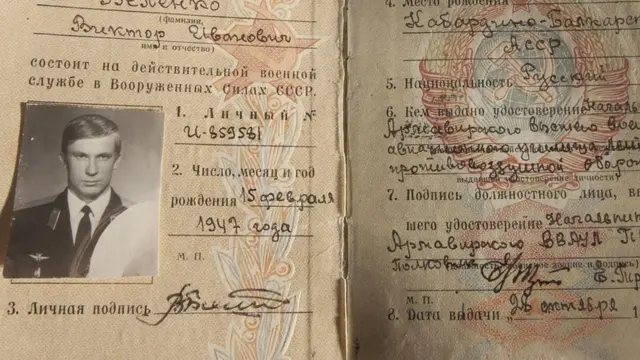 (фамилия,
Виктор Иванович
имя и отчество)
состоит на действительной военной
службе в Вооруженных Силах СССР.
1. Личный №
И-859581
2. Число, месяц и год
рождения 15 февраля
1947 года
М. П.
3. Личная подпись
4. Место рождения
Кабардино-Балкарс
АССР
5. Национальность Русский
6. Кем выдано удостоверение Началь
Армавирского высшего вое
авиационного училища лет
противовоздушной оборон
7. Подпись должностного лица, вы
шего удостоверение Начальник
Армавирского ВВАУЛ П
Полковник
М. П.
8. Дата выдачи „26 октября 1